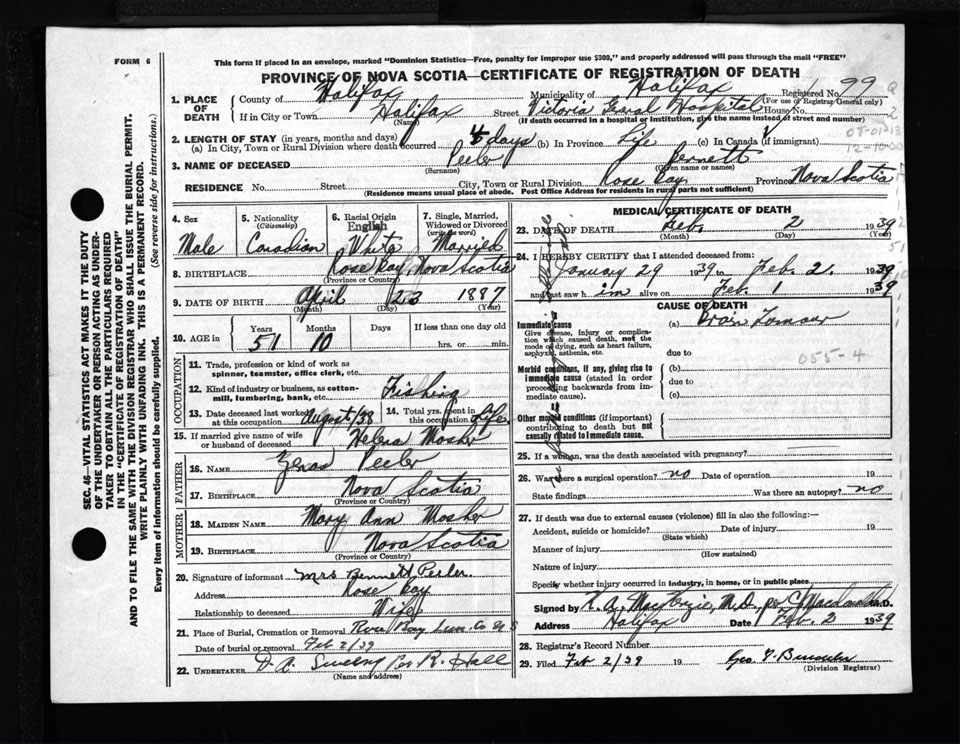 FORM 6
This form if placed in an envelope, marked "Dominion Statistics—Free, penalty for improper use $300," and properly addressed will pass through the mail "FREE"
PROVINCE OF NOVA SCOTIA—CERTIFICATE OF REGISTRATION OF DEATH
Registered No. 99
(For use of Registrar General only)
1. PLACE OF DEATH
County of Halifax Municipality of Halifax
If in City or Town Halifax Street Victoria General Hospital House No.
(Name) (If death occurred in a hospital or institution, give the name instead of street and number)
2. LENGTH OF STAY (in years, months and days)
(a) In City, Town or Rural Division where death occurred 4 days (b) In Province Life (c) In Canada (if immigrant)
3. NAME OF DECEASED Peeler Bennett
(Surname) (Given name or names)
RESIDENCE No. Street City, Town or Rural Division Rose Bay Province Nova Scotia
(Residence means usual place of abode. Post Office Address for residents in rural parts not sufficient)
4. Sex
Male
5. Nationality
(Citizenship)
Canadian
6. Racial Origin
English
White
7. Single, Married, Widowed or Divorced
(write the word)
Married
8. BIRTHPLACE Rose Bay, Nova Scotia
(Province or Country)
9. DATE OF BIRTH April 23 1887
(Month) (Day) (Year)
10. AGE in
Years Months Days If less than one day old
51 10 hrs. or min.
OCCUPATION
11. Trade, profession or kind of work as spinner, teamster, office clerk, etc.
12. Kind of industry or business, as cotton-mill, lumbering, bank, etc. Fishing
13. Date deceased last worked at this occupation August/38
14. Total yrs. spent in this occupation Life
15. If married give name of wife or husband of deceased Helena Mosher
FATHER
16. Name Zenas Peeler
17. Birthplace Nova Scotia
(Province or Country)
MOTHER
18. MAIDEN NAME Mary Ann Mosher
19. BIRTHPLACE Nova Scotia
(Province or Country)
20. Signature of informant Mrs Bennett Peeler
Address Rose Bay
Relationship to deceased Wife
21. Place of Burial, Cremation or Removal Rose Bay Lun. Co N S
Date of burial or removal Feb 2/39
22. UNDERTAKER
(Name and address)
MEDICAL CERTIFICATE OF DEATH
23. DATE OF DEATH Feb. 2 1939
(Month) (Day) (Year)
24. I HEREBY CERTIFY that I attended deceased from:
January 29 1939 to Feb. 2. 1939
and last saw him alive on Feb. 1 1939
CAUSE OF DEATH
Immediate cause
Give disease, injury or complication which caused death, not the mode of dying, such as heart failure, asphyxia, asthenia, etc.
(a) Brain Tumour
due to
055-4
Morbid conditions, if any, giving rise to immediate cause (stated in order proceeding backwards from immediate cause).
(b)
due to
(c)
Other morbid conditions (if important) contributing to death but not causally related to immediate cause.
25. If a woman, was the death associated with pregnancy?
26. Was there a surgical operation? no Date of operation 19
State findings Was there an autopsy? no
27. If death was due to external causes (violence) fill in also the following:—
Accident, suicide or homicide? Date of injury 19
(State which)
Manner of injury
(How sustained)
Nature of injury
Specify whether injury occurred in industry, in home, or in public place
Signed by M.D.
Address Halifax Date Feb. 2 1939
28. Registrar's Record Number
29. Filed Feb 2/39 19
(Division Registrar)
SEC. 46—VITAL STATISTICS ACT MAKES IT THE DUTY OF THE UNDERTAKER OR PERSON ACTING AS UNDERTAKER TO OBTAIN ALL THE PARTICULARS REQUIRED IN THE "CERTIFICATE OF REGISTRATION OF DEATH" AND TO FILE THE SAME WITH THE DIVISION REGISTRAR WHO SHALL ISSUE THE BURIAL PERMIT.
WRITE PLAINLY WITH UNFADING INK. THIS IS A PERMANENT RECORD.
Every item of information should be carefully supplied. (See reverse side for instructions.)